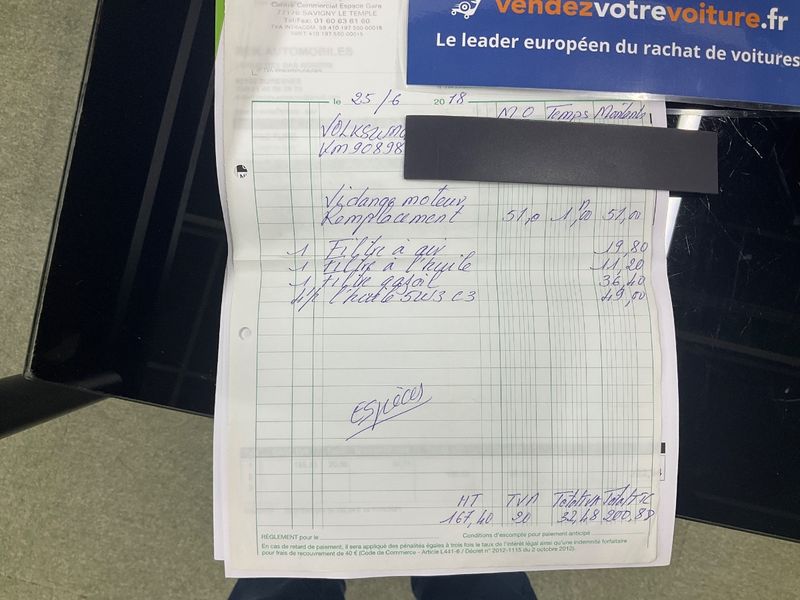 vendezvotrevoiture.fr
Le leader européen du rachat de voitures
Centre Commercial Espace Gare
77176 SAVIGNY LE TEMPLE
Tél/Fax: 01 60 63 61 60
le 25/6 2018
M O Temps Montants
VOLKSWA
KM 90898
Vidange moteur
Remplacement 51,0 1,00 51,00
1 Filtre à air 19,80
1 Filtre à l'huile 11,20
1 Filtre gasoil 36,40
l'huile 5W3 C3 49,00
Espèces
HT TVA Total TVA Total TTC
167,40 20 32,48 200,88
RÈGLEMENT pour le
Conditions d'escompte pour paiement anticipé
En cas de retard de paiement, il sera appliqué des pénalités égales à trois fois le taux de l'intérêt légal ainsi qu'une indemnité forfaitaire
pour frais de recouvrement de 40 € (Code de Commerce - Article L441-6 / Décret n° 2012-1115 du 2 octobre 2012).